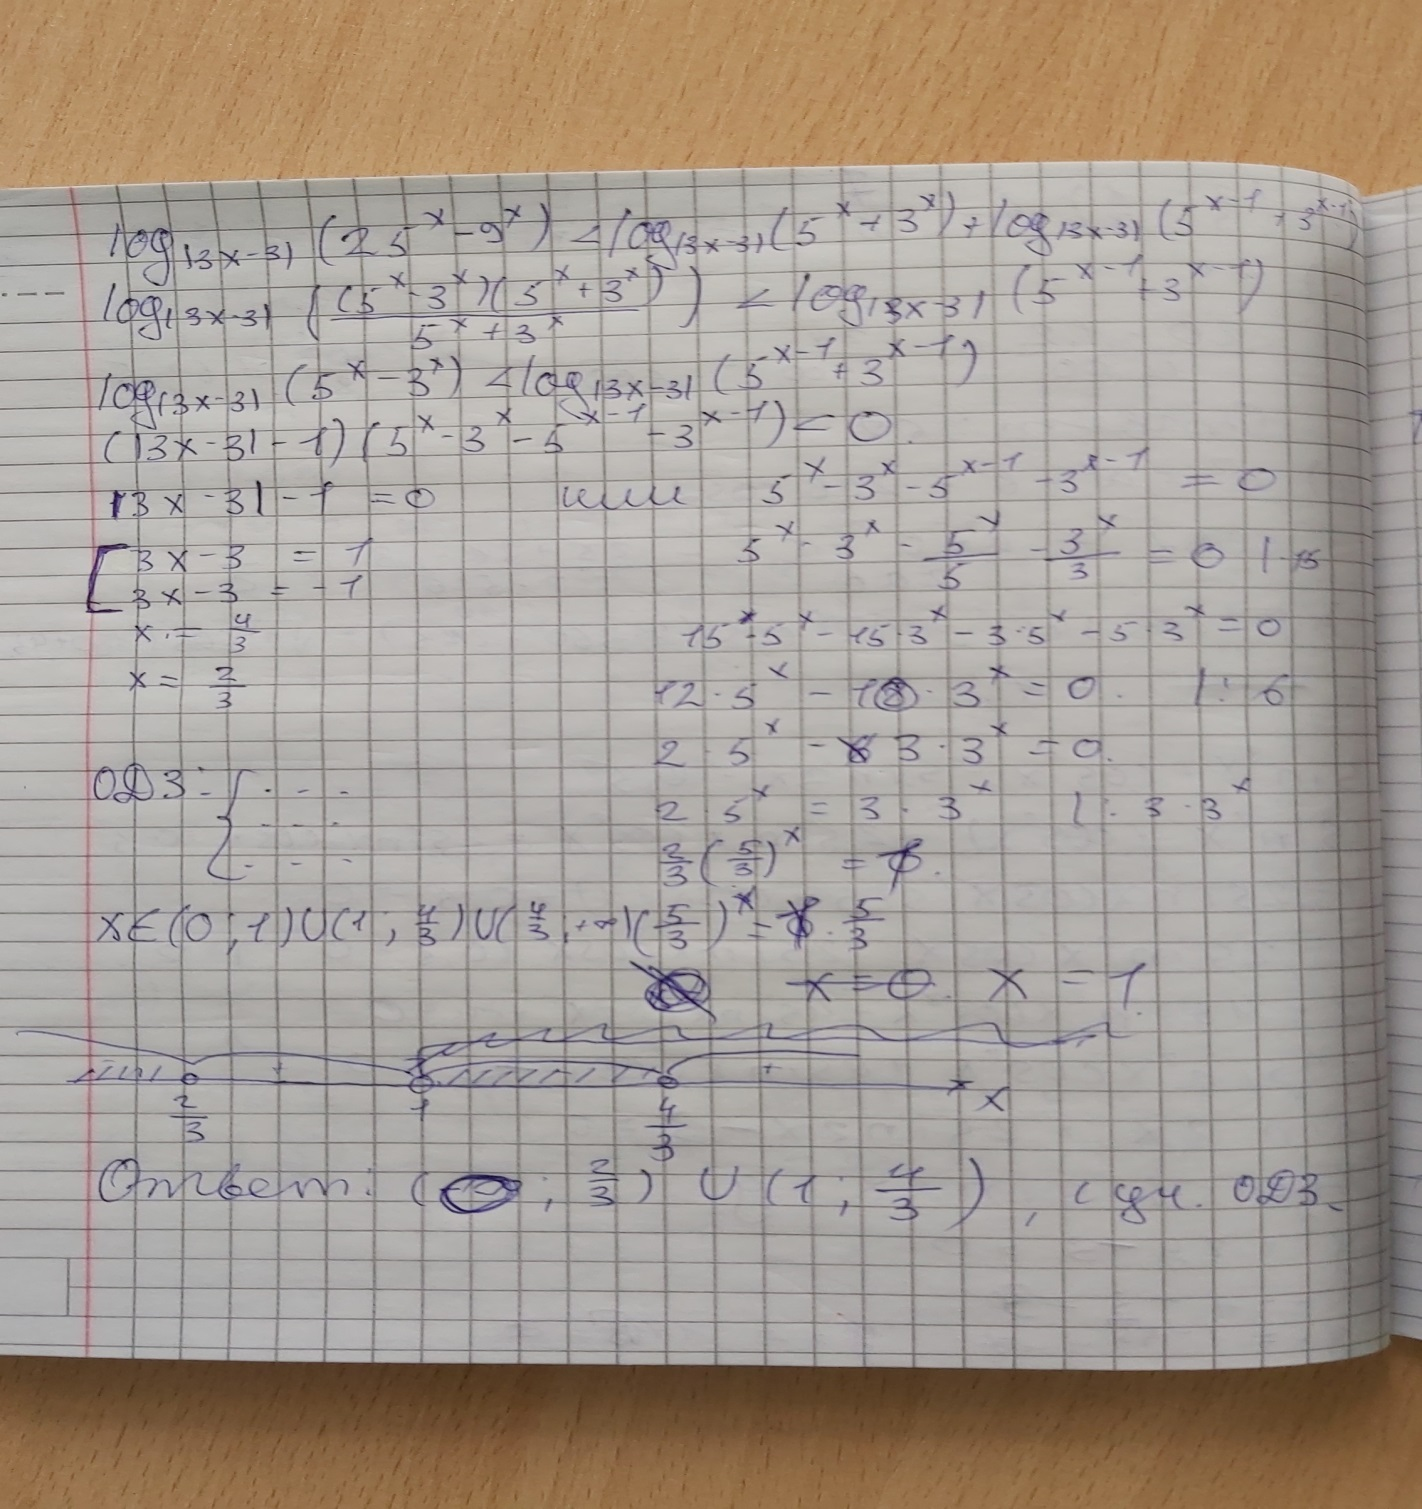 log|3x-3| (25^x - 9^x) < log|3x-3| (5^x + 3^x) + log|3x-3| (5^{x-1} + 3^{x-1})
log|3x-3| ((5^x - 3^x)(5^x + 3^x) / 5^x + 3^x) < log|3x-3| (5^{x-1} + 3^{x-1})
log|3x-3| (5^x - 3^x) < log|3x-3| (5^{x-1} + 3^{x-1})
(|3x-3| - 1)(5^x - 3^x - 5^{x-1} - 3^{x-1}) < 0.
|3x-3| - 1 = 0 или 5^x - 3^x - 5^{x-1} - 3^{x-1} = 0
[ 3x - 3 = 1 5^x - 3^x - 5^x/5 - 3^x/3 = 0 | · 15
3x - 3 = -1
x = 4/3 15 · 5^x - 15 · 3^x - 3 · 5^x - 5 · 3^x = 0
x = 2/3 12 · 5^x - 18 · 3^x = 0. | : 6
2 · 5^x - 3 · 3^x = 0.
ОДЗ: { - - - 2 · 5^x = 3 · 3^x | : 3 · 3^x
- - -
- - - 2/3 (5/3)^x =
x∈(0; 1)∪(1; 4/3)∪(4/3; +∞) (5/3)^x = 5/3
x = 0 x = 1
+ +
2/3 1 4/3 x
Ответ: ( ; 2/3) ∪ (1; 4/3), с уч. ОДЗ.